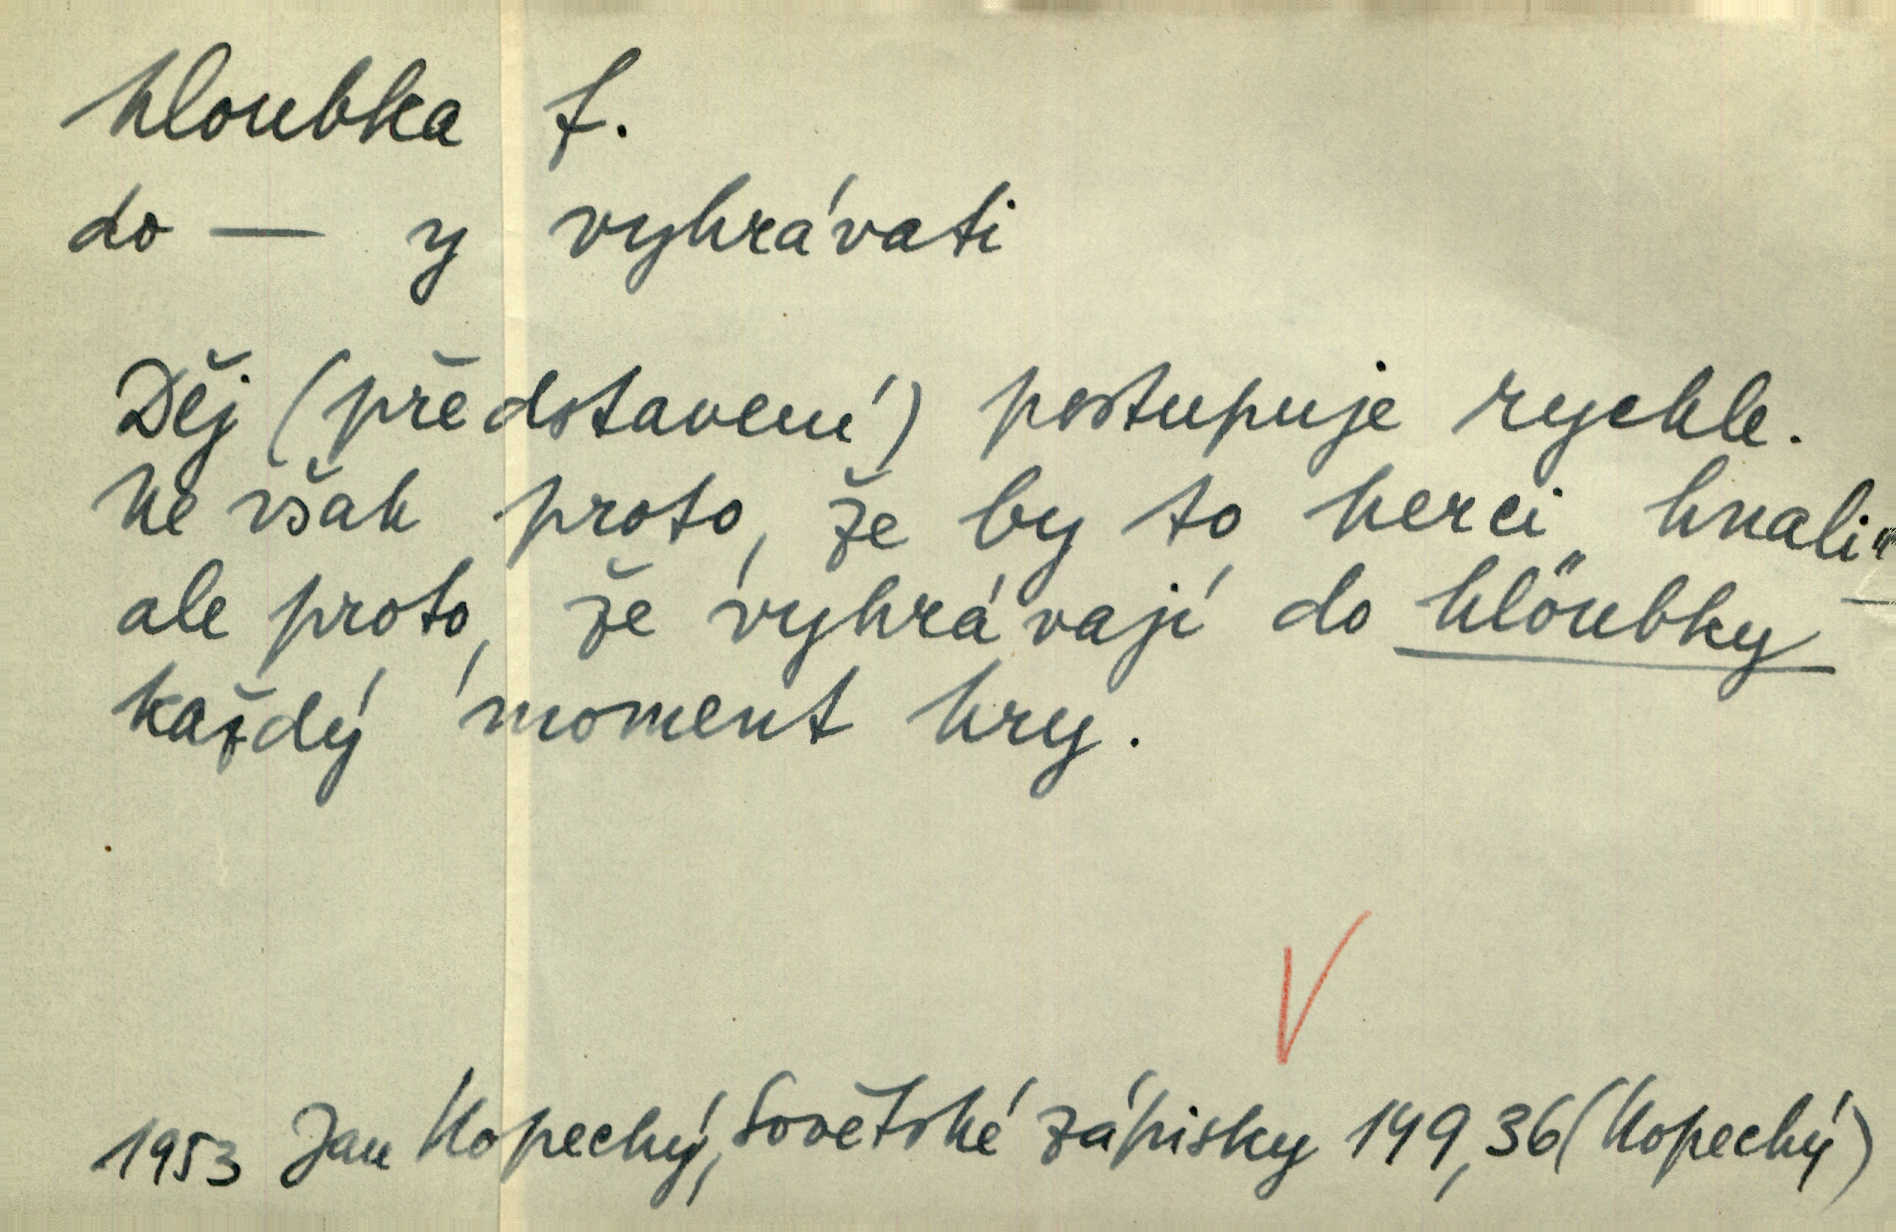 hloubka f.
do — y vyhrávati
Děj (představení) postupuje rychle.
Ne však proto, že by to herci „hnali“
ale proto, že vyhrávají do hloubky
každý moment hry.
V
1953 Jan Kopecký, Sovětské zápisky 149,36 (Kopecký)